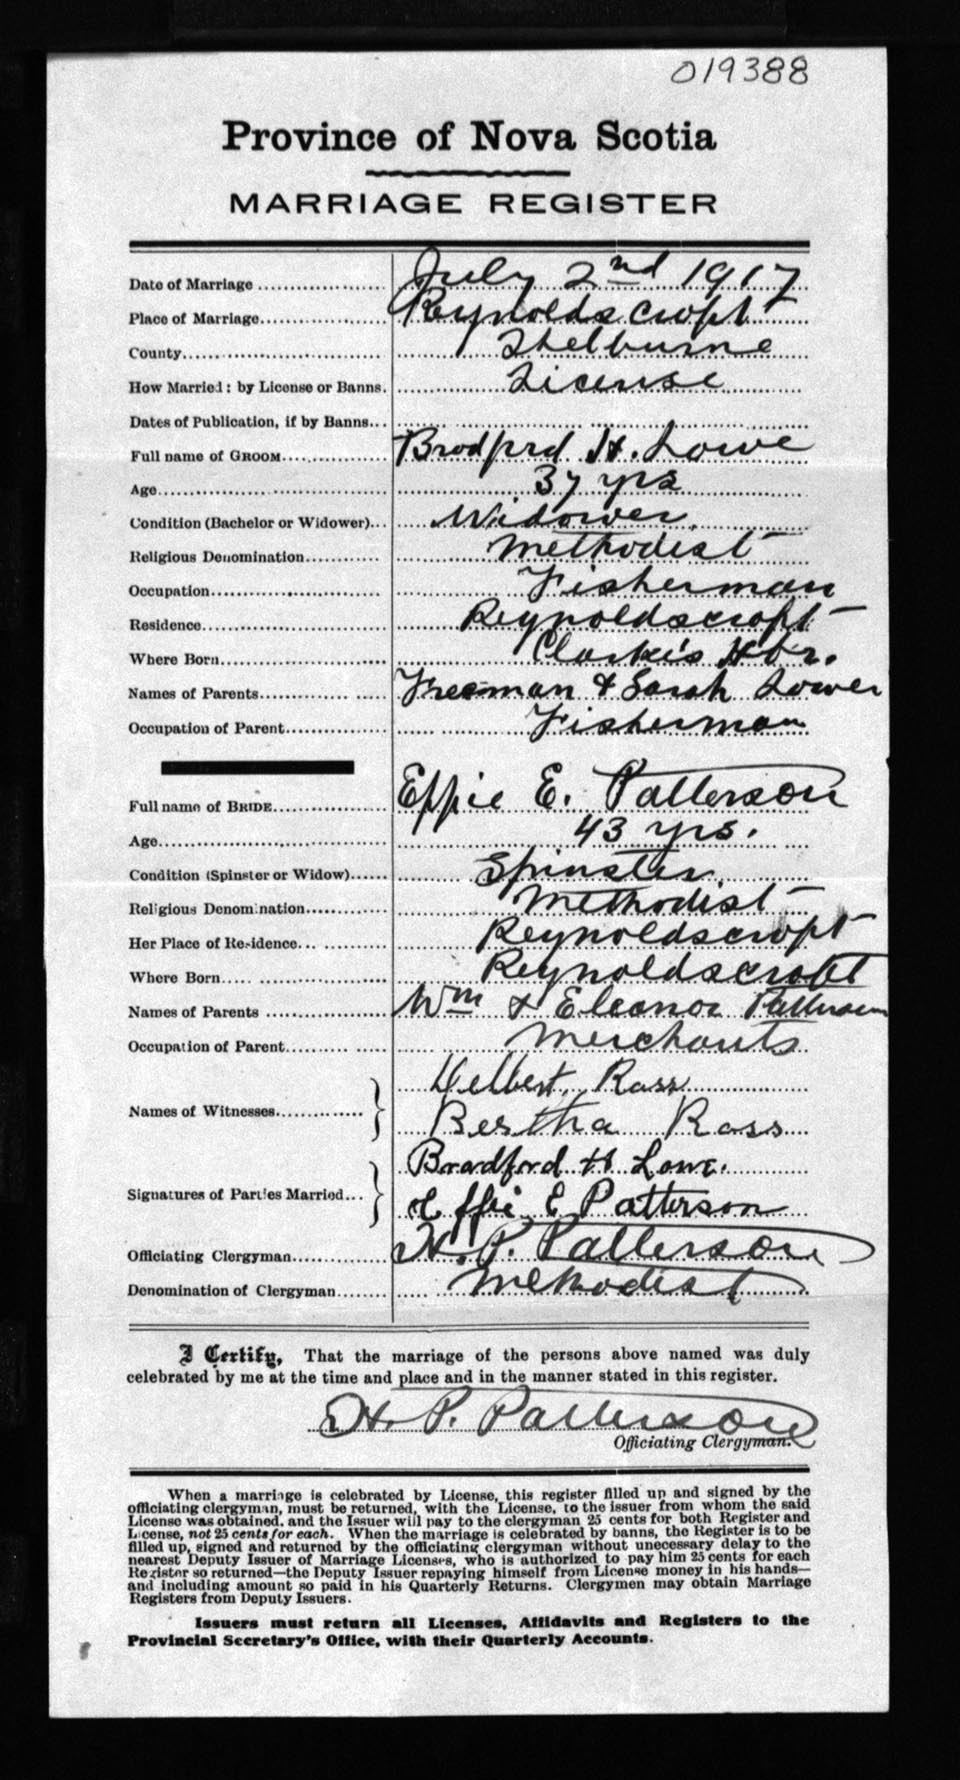 019388
Province of Nova Scotia
MARRIAGE REGISTER
Date of Marriage July 2nd 1917
Place of Marriage Reynoldscroft
County Shelburne
How Married: by License or Banns. License
Dates of Publication, if by Banns
Full name of GROOM Bradford H. Lowe
Age 37 yrs
Condition (Bachelor or Widower) Widower
Religious Denomination Methodist
Occupation Fisherman
Residence Reynoldscroft
Where Born Clarke's Hbr.
Names of Parents Freeman & Sarah Lower
Occupation of Parent Fisherman
Full name of BRIDE Effie E. Patterson
Age 43 yrs.
Condition (Spinster or Widow) Spinster
Religious Denomination Methodist
Her Place of Residence Reynoldscroft
Where Born Reynoldscroft
Names of Parents Wm & Eleanor Patterson
Occupation of Parent Merchants
Names of Witnesses Ross
Bertha Ross
Signatures of Parties Married Bradford H Lowe.
Effie E Patterson
Officiating Clergyman H. P. Patterson
Denomination of Clergyman Methodist
I Certify, That the marriage of the persons above named was duly
celebrated by me at the time and place and in the manner stated in this register.
H. P. Patterson
Officiating Clergyman.
When a marriage is celebrated by License, this register filled up and signed by the
officiating clergyman, must be returned, with the License, to the issuer from whom the said
License was obtained, and the Issuer will pay to the clergyman 25 cents for both Register and
License, not 25 cents for each. When the marriage is celebrated by banns, the Register is to be
filled up, signed and returned by the officiating clergyman without unnecessary delay to the
nearest Deputy Issuer of Marriage Licenses, who is authorized to pay him 25 cents for each
Register so returned—the Deputy Issuer repaying himself from License money in his hands—
and including amount so paid in his Quarterly Returns. Clergymen may obtain Marriage
Registers from Deputy Issuers.
Issuers must return all Licenses, Affidavits and Registers to the
Provincial Secretary's Office, with their Quarterly Accounts.